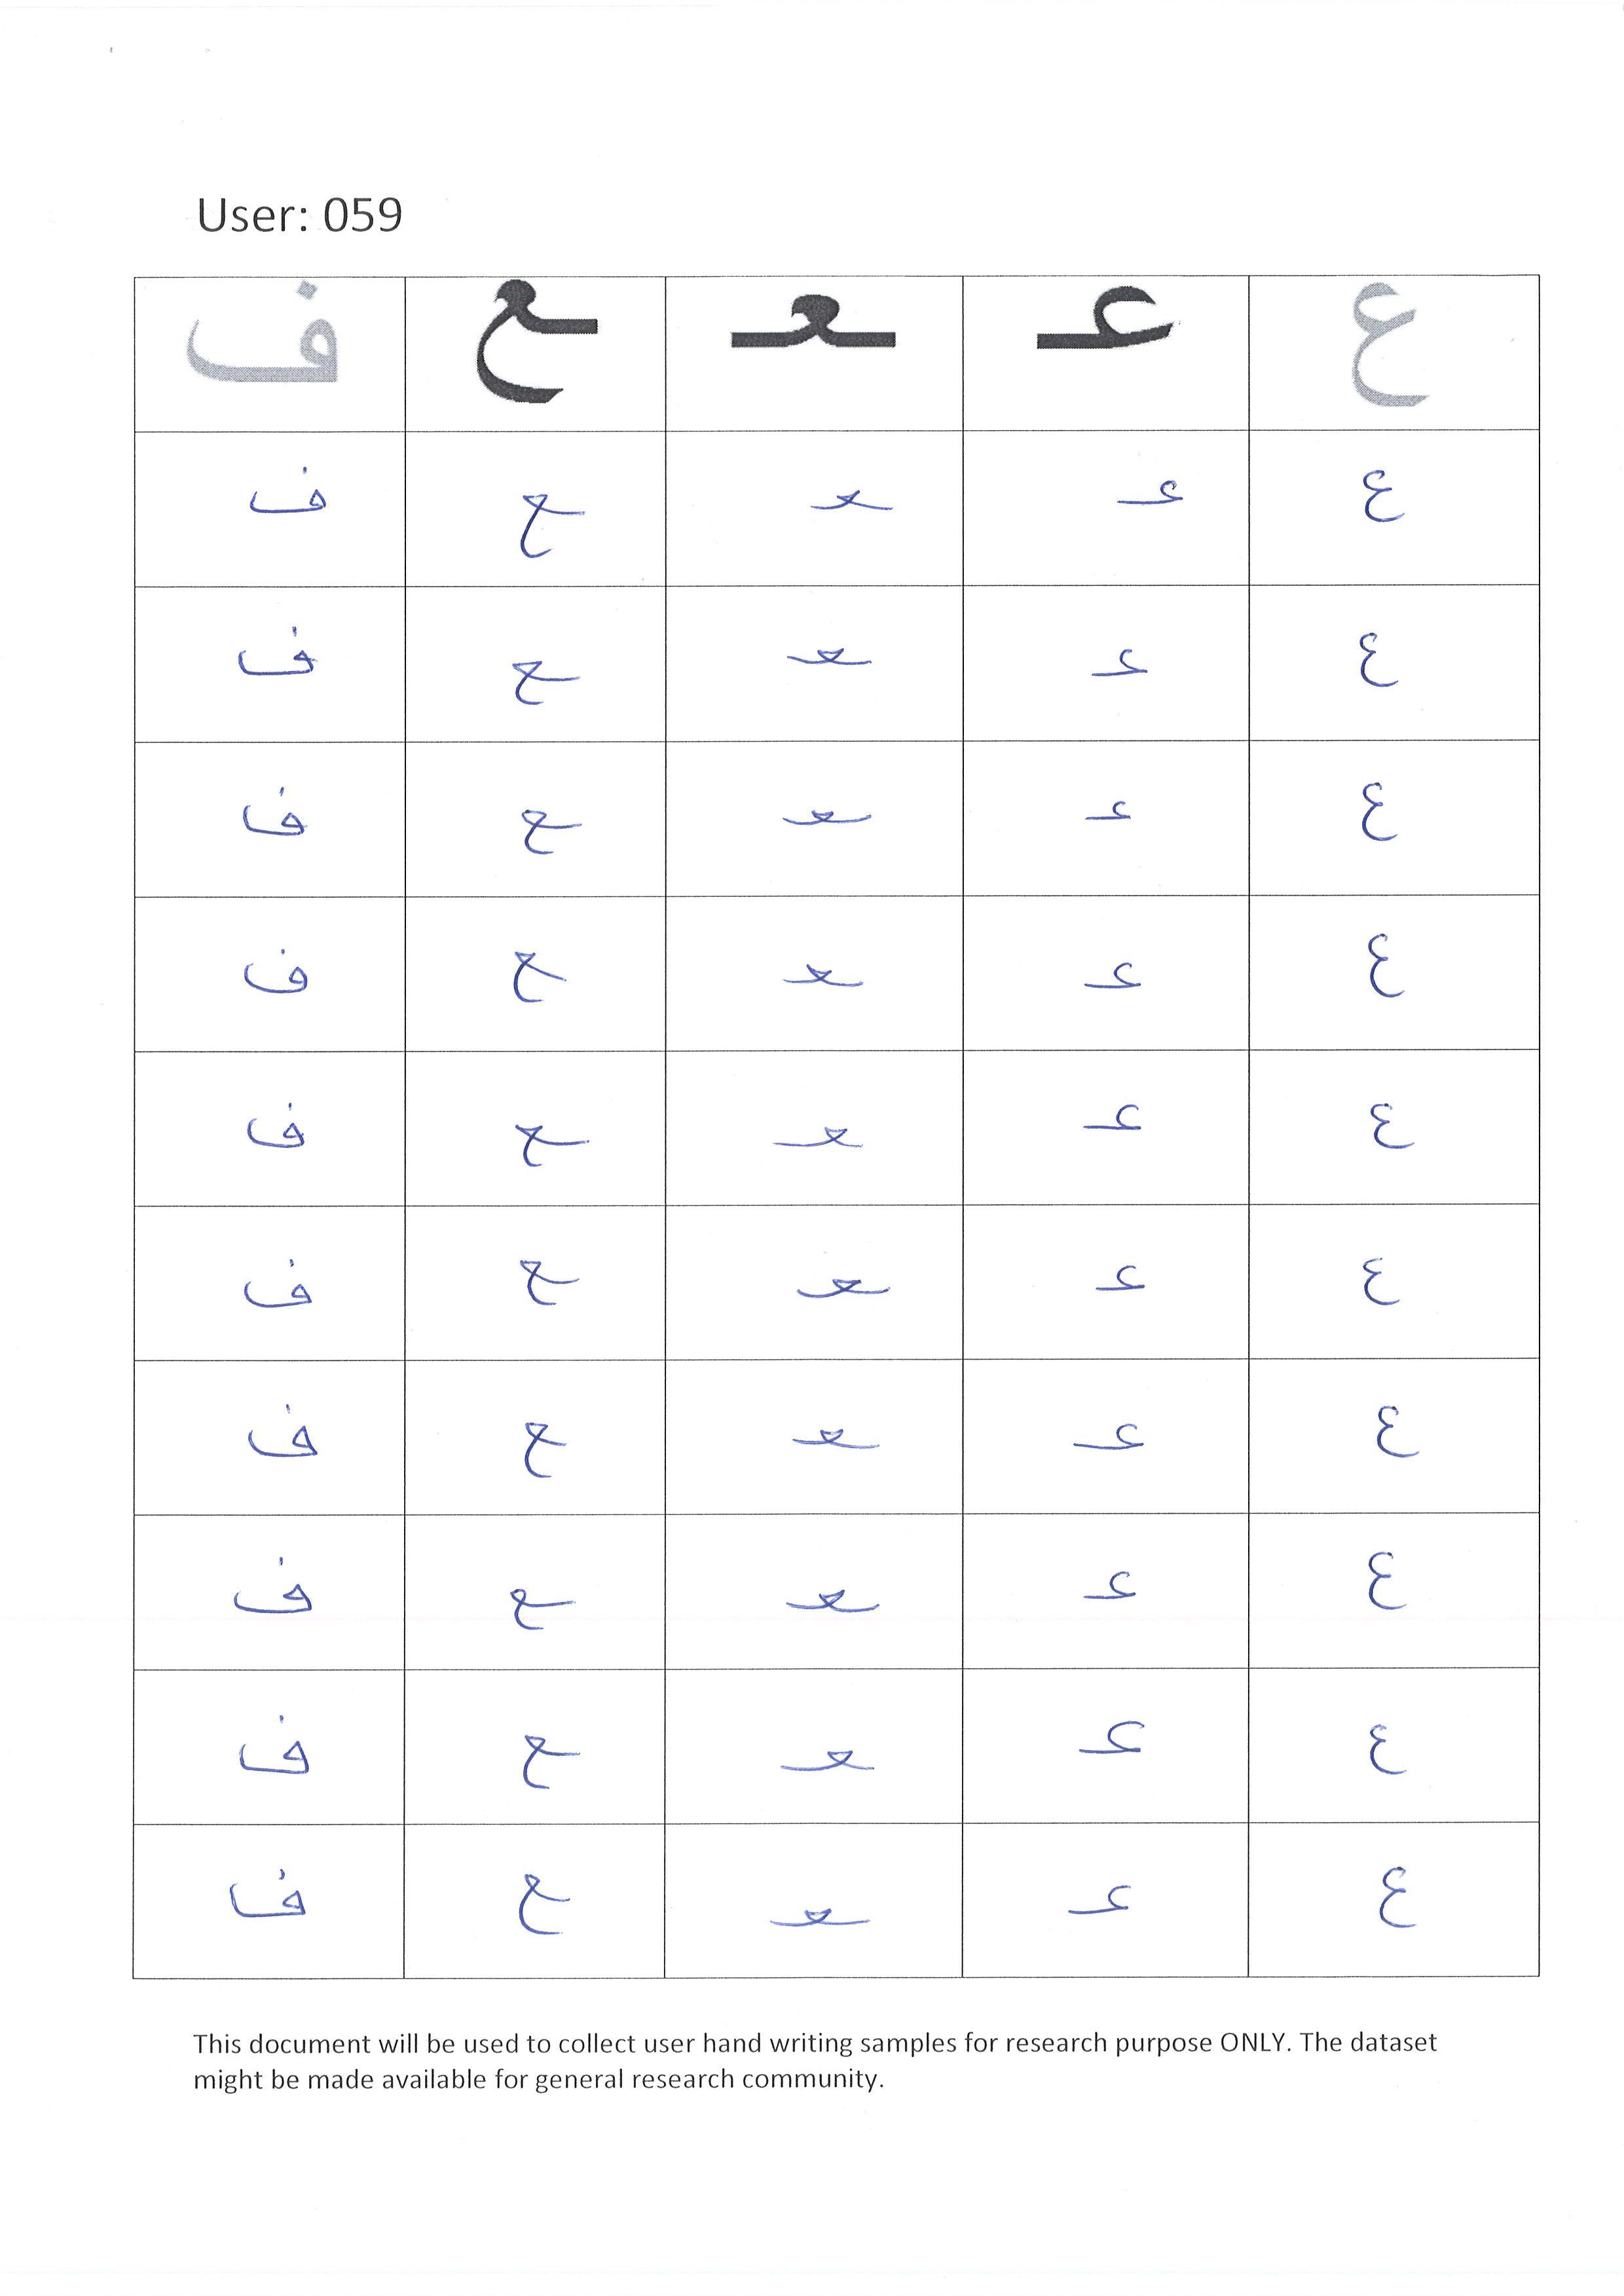 User: 059
ع عـ ـعـ ـع ف
ع عـ ـعـ ـع ف
ع عـ ـعـ ـع ف
ع عـ ـعـ ـع ف
ع عـ ـعـ ـع ف
ع عـ ـعـ ـع ف
ع عـ ـعـ ـع ف
ع عـ ـعـ ـع ف
ع عـ ـعـ ـع ف
ع عـ ـعـ ـع ف
ع عـ ـعـ ـع ف
This document will be used to collect user hand writing samples for research purpose ONLY. The dataset
might be made available for general research community.